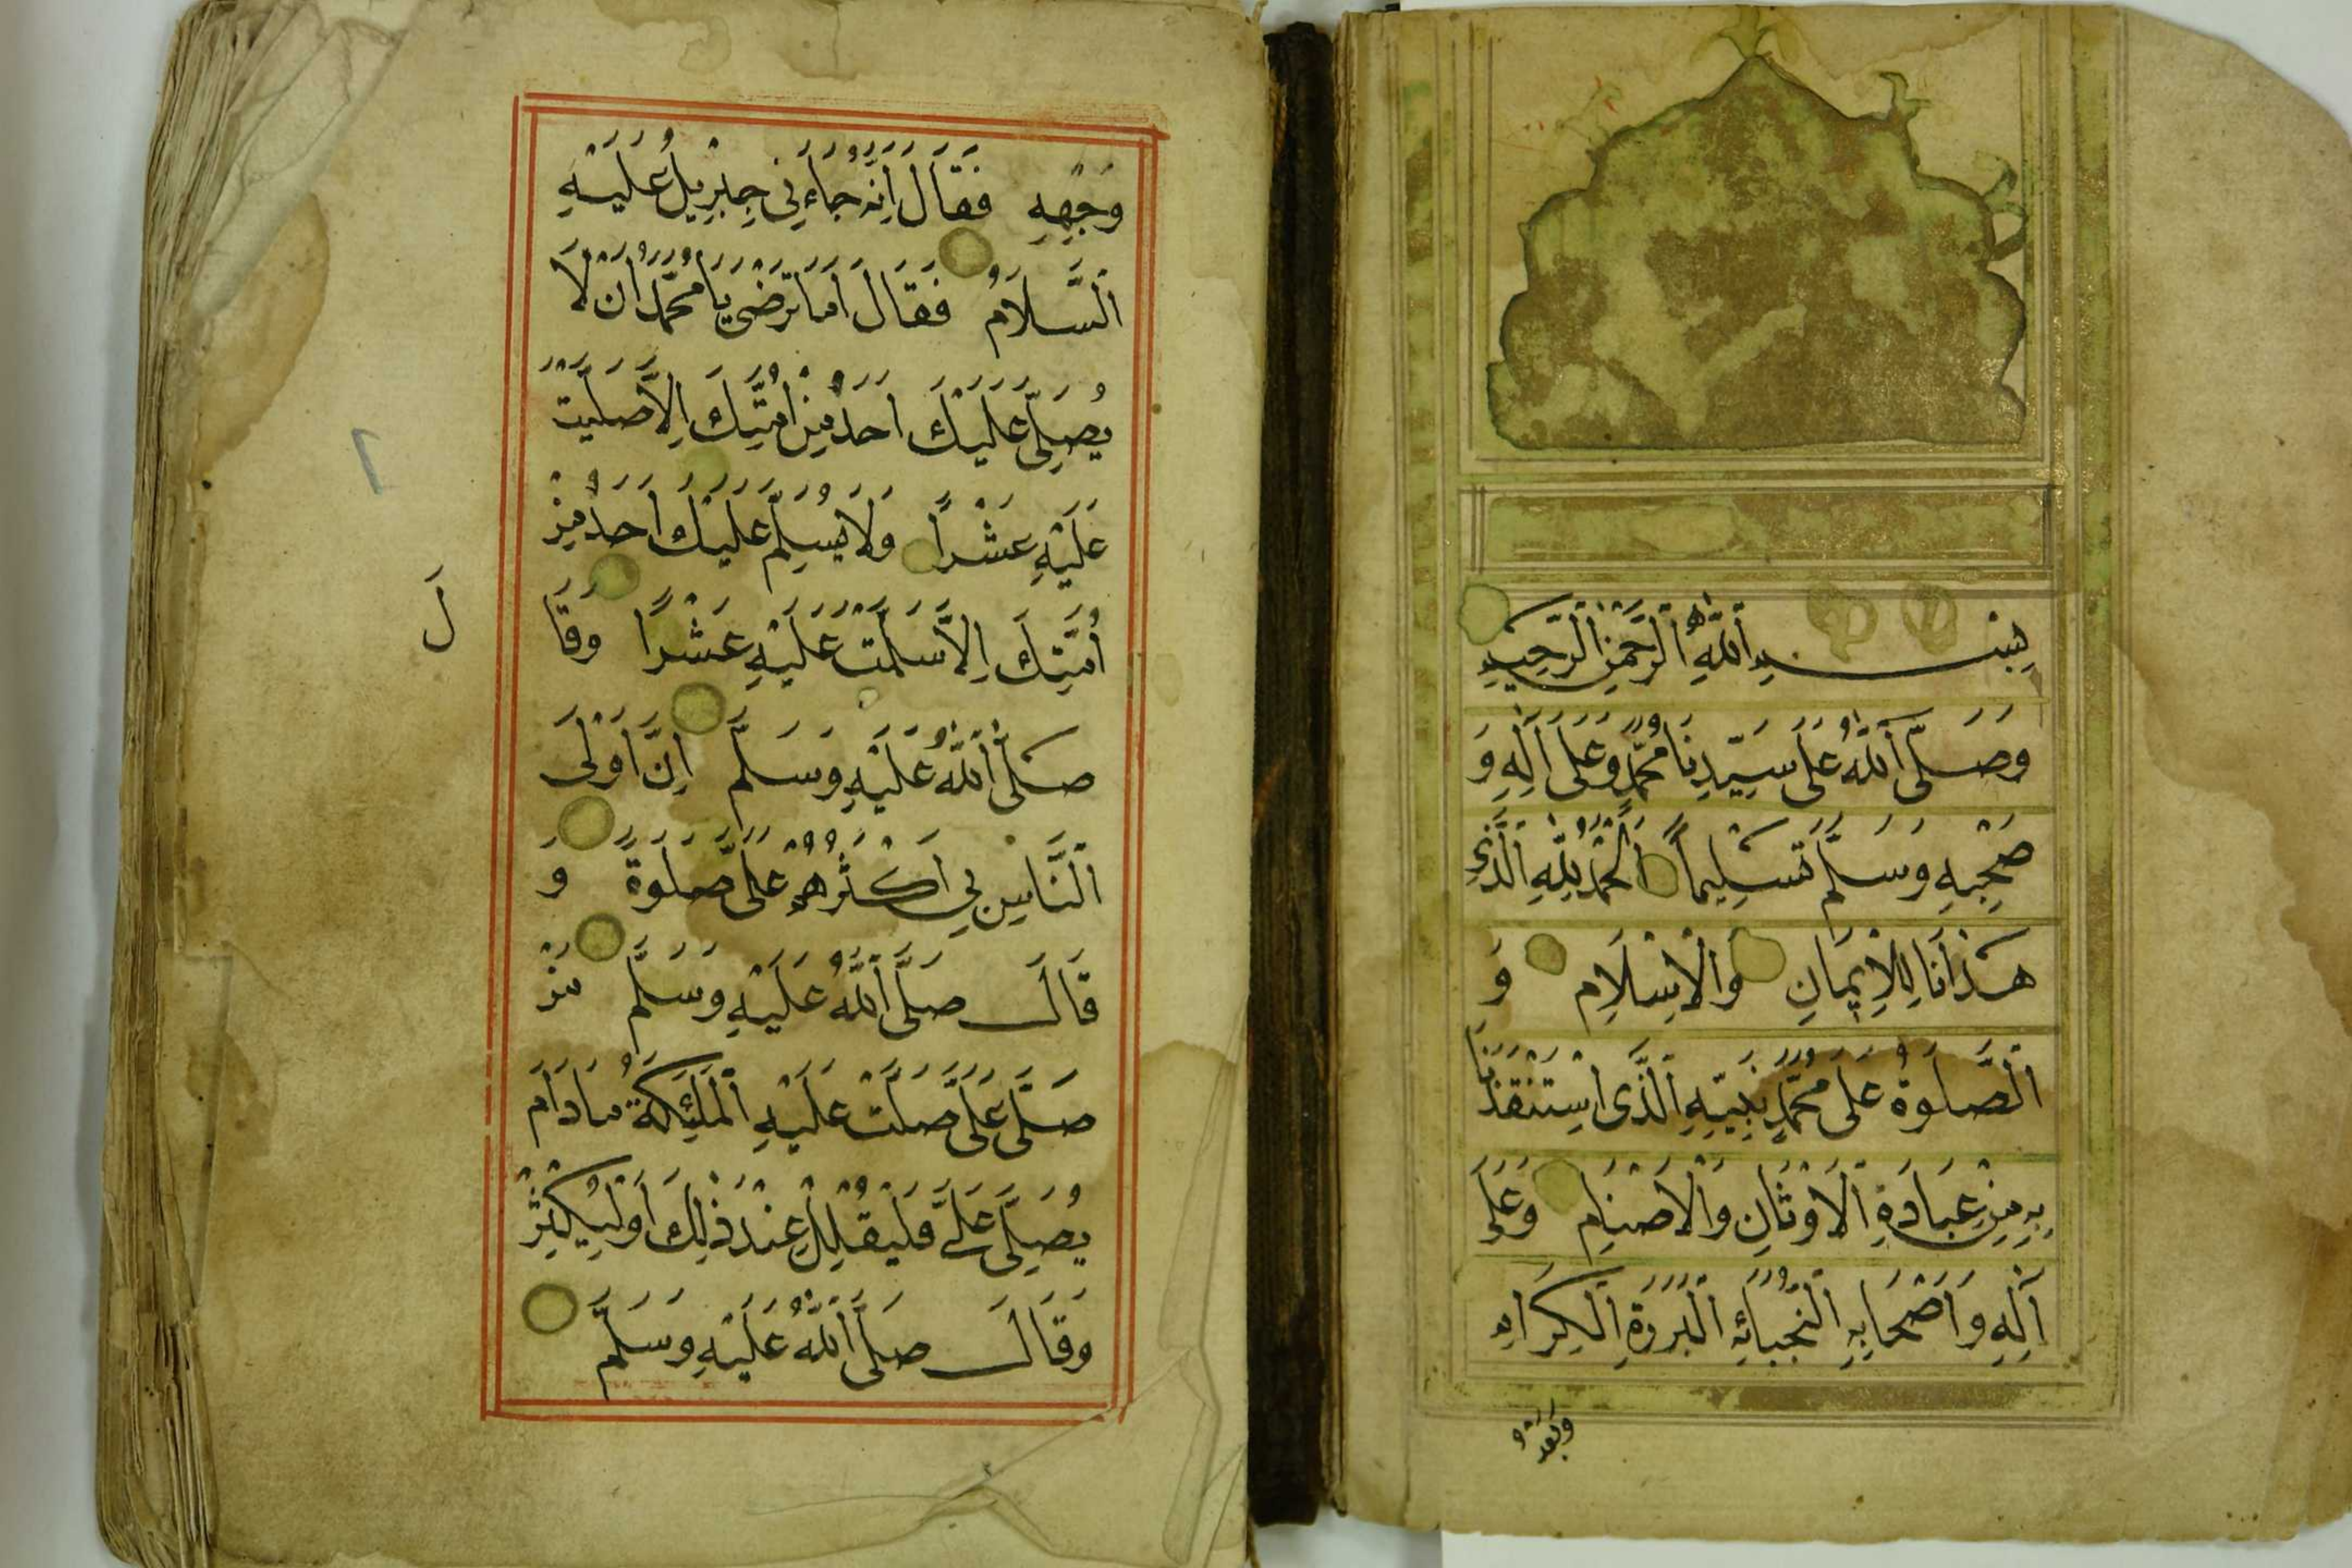 بِسْـــــمِ اللّٰهِ الرَّحْمٰنِ الرَّحِيمِ
وَصَلَّى اللّٰهُ عَلَى سَيِّدِنَا مُحَمَّدٍ وَعَلَى آلِهِ وَ
صَحْبِهِ وَسَلَّمَ تَسْلِيمًا اَلْحَمْدُ لِلّٰهِ الَّذِي
هَدَانَا لِلْاِيمَانِ وَالْاِسْلَامِ وَ
الصَّلَوةُ عَلَى مُحَمَّدٍ نَبِيِّهِ الَّذِى اسْتَنْقَذَنَا
بِهِ مِنْ عِبَادَةِ الْاَوْثَانِ وَالْاَصْنَامِ وَعَلَى
آلِهِ وَاَصْحَابِهِ النُّجَبَائِهِ الْبَرَرَةِ الْكِرَامِ
وَبَعْدُ
وَجْهِهِ فَقَالَ اِنَّهُ جَاءَنِي جِبْرِيلُ عَلَيْهِ
السَّلَامُ فَقَالَ اَمَا تَرْضَى يَا مُحَمَّدُ اَنْ لَا
يُصَلِّيَ عَلَيْكَ اَحَدٌ مِنْ اُمَّتِكَ اِلَّا صَلَّيْتُ
عَلَيْهِ عَشْرًا وَلَا يُسَلِّمَ عَلَيْكَ اَحَدٌ مِنْ
اُمَّتِكَ اِلَّا سَلَّمْتُ عَلَيْهِ عَشْرًا وَقَا
لَ
صَلَّى اللّٰهُ عَلَيْهِ وَسَلَّمَ اِنَّ اَوْلَى
النَّاسِ بِي اَكْثَرُهُمْ عَلَيَّ صَلَوةً وَ
قَالَ صَلَّى اللّٰهُ عَلَيْهِ وَسَلَّمَ مَنْ
صَلَّى عَلَيَّ صَلَّتْ عَلَيْهِ الْمَلٰئِكَةُ مَا دَامَ
يُصَلِّي عَلَيَّ فَلْيُقْلِلْ عِنْدَ ذٰلِكَ اَوْ لِيُكْثِرْ
وَقَالَ صَلَّى اللّٰهُ عَلَيْهِ وَسَلَّمَ